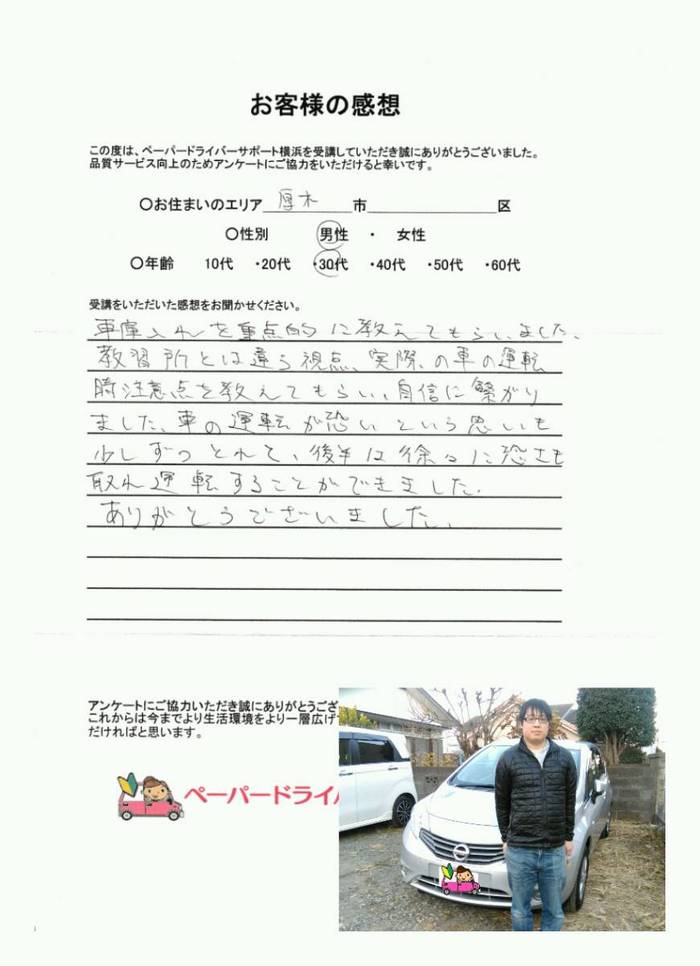 お客様の感想
この度は、ペーパードライバーサポート横浜を受講していただき誠にありがとうございました。
品質サービス向上のためアンケートにご協力をいただけると幸いです。
〇お住まいのエリア 厚木 市 区
〇性別 男性 ・ 女性
〇年齢 10代 ・20代 ・30代 ・40代 ・50代 ・60代
受講をいただいた感想をお聞かせください。
車庫入れを重点的に教えてもらいました。
教習所とは違う視点、実際の車の運転
時注意点を教えてもらい、自信に繋がり
ました。車の運転が恐いという思いも
少しずつとれて、後半は徐々に恐さも
取れ運転することができました。
ありがとうございました。
アンケートにご協力いただき誠にありがとうござ
これからは今までより生活環境をより一層広げ
だければと思います。
ペーパードライバ